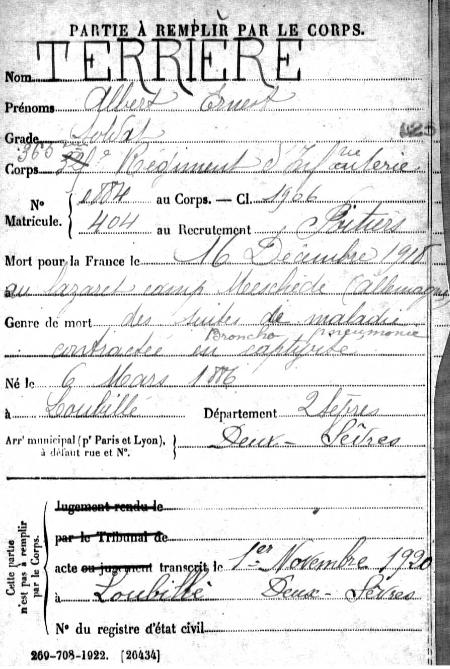 PARTIE À REMPLIR PAR LE CORPS.
Nom TERRIÈRE
Prénoms Albert Ernest
Grade Soldat
Corps 365 Régiment d'Infanterie
N° Matricule. 1884 au Corps. — Cl. 1906
404 au Recrutement Poitiers
Mort pour la France le 16 Décembre 1918
à au lazaret camp Meschède (Allemagne)
Genre de mort des suites de maladie
Broncho pneumonie
contractée en captivité
Né le 6 Mars 1886
à Loubillé Département 2 Sèvres
Arrt municipal (pr Paris et Lyon), à défaut rue et N°. Deux-Sèvres
Cette partie n'est pas à remplir par le Corps.
Jugement rendu le
par le Tribunal de
acte ou jugement transcrit le 1er Novembre 1920
à Loubillé Deux-Sèvres
N° du registre d'état civil
269-708-1922. [26434]